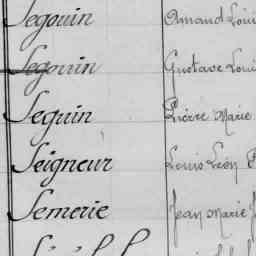 Segouin Amand Loui
Segouin Gustave Loui
Seguin Pierre Marie
Seigneur Louis Léon
Semerie Jean Marie